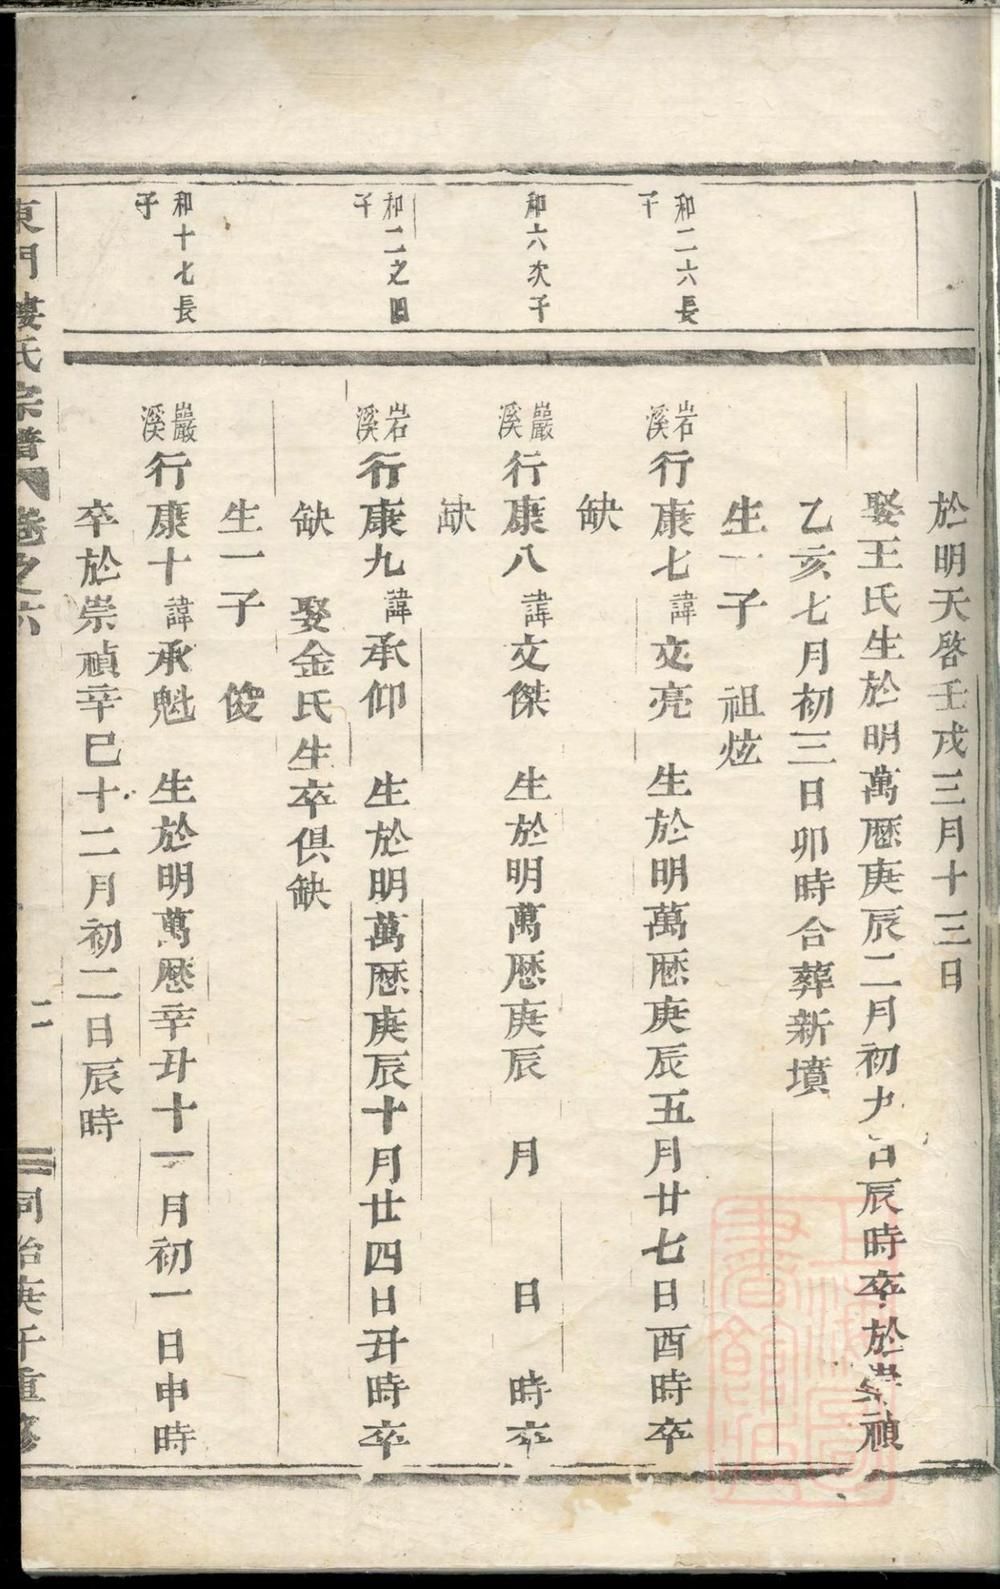 於明天啓壬戌三月十三日
娶王氏生於明萬厯庚辰二月初九日辰時卒於崇禎
乙亥七月初三日卯時合葬新墳
生一子 祖炫
和二六長子
岩溪行康七諱文亮 生於明萬厯庚辰五月廿七日酉時卒
缺
和六次子
巖溪行康八諱文傑 生於明萬厯庚辰 月 日 時卒
缺
和二之四子
岩溪行康九諱承仰 生於明萬厯庚辰十月廿四日丑時卒
缺 娶金氏生卒俱缺
生一子 俊
和十七長子
巖溪行康十諱承魁 生於明萬厯辛丑十一月初一日申時
卒於崇禎辛巳十二月初二日辰時
東門樓氏宗譜 卷之六 二 同治庚午重修